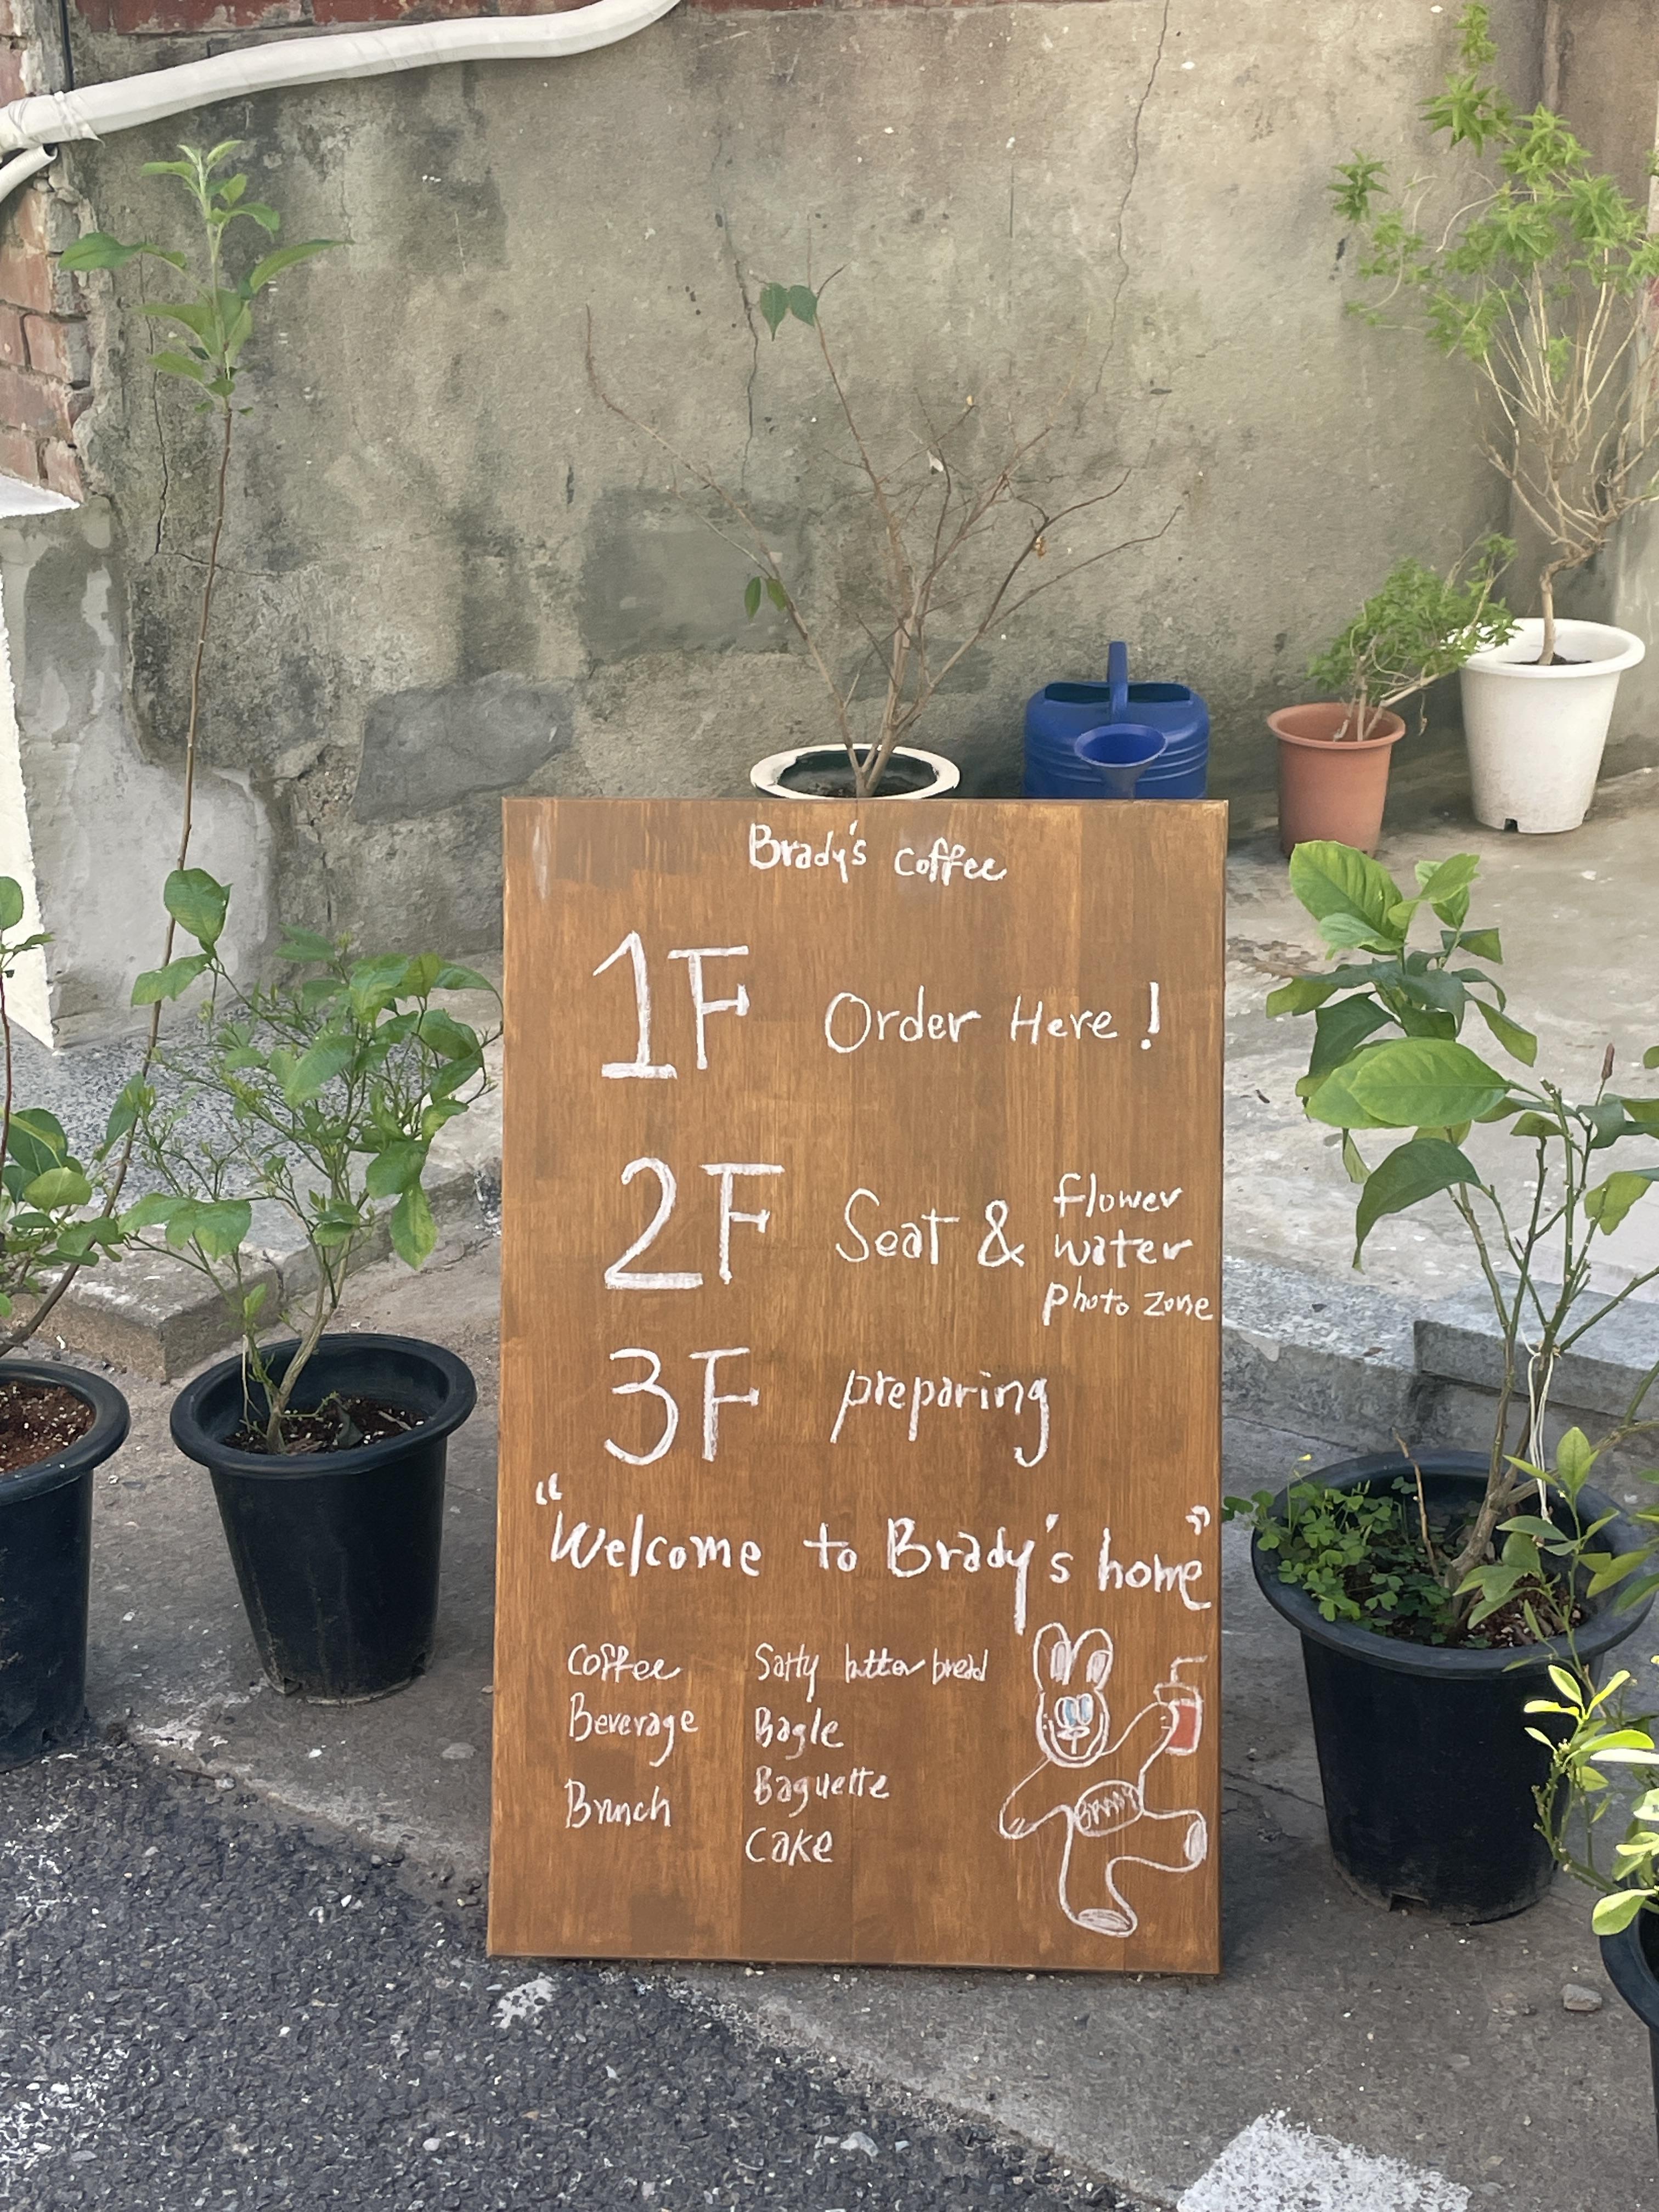 Brady's coffee
1F Order Here !
2F Seat & flower
water
photo zone
3F preparing
"Welcome to Brady's home"
Coffee
Beverage
Brunch
Salty butter bread
Bagle
Baguette
Cake
BRADY